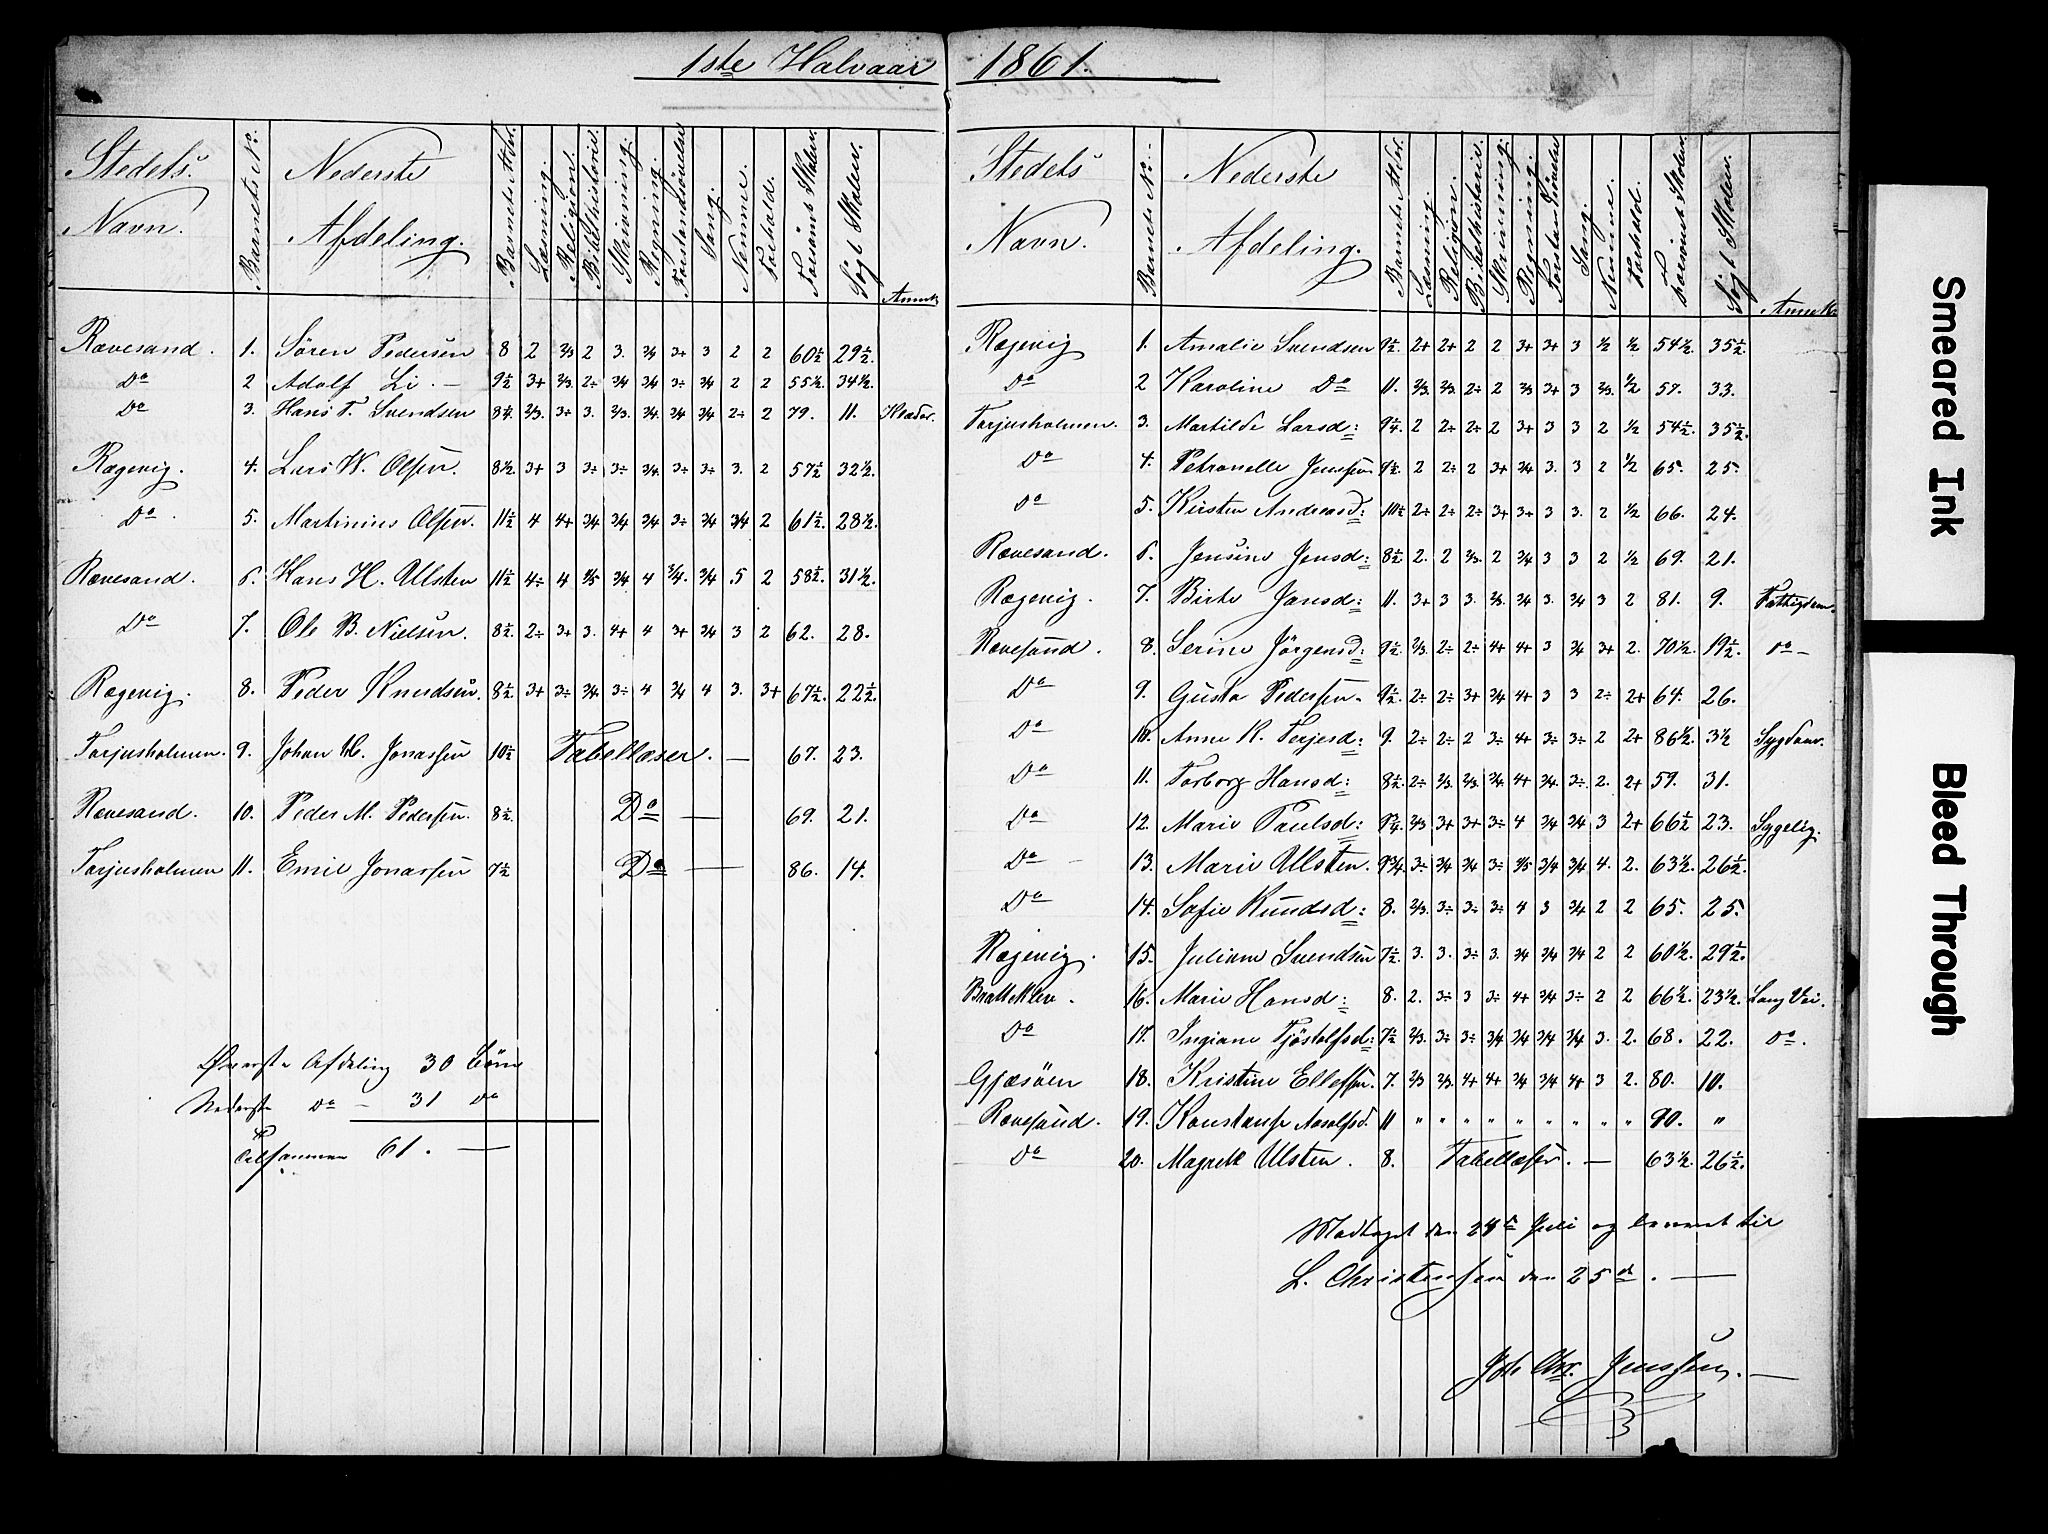 1ste Halvaar 1861.
Stedets Navn. Barnets No. Nederste Afdeling. Barnets Alder. Læsning. Religion. Bibelhistorie. Skrivning. Regning. Forstandsövelse Sang. Nemme. Forhold. Forsömt Skolen. Sögt Skolen. Anmk
Rævesand. 1. Sören Pedersen 8 2 2/3 2 3. 3/4 3+ 3 2 2 60½ 29½.
Do 2 Adolf Li. — 9½ 3+ 2/3. 2÷ 3/4 3/4 3÷ 3/4 2 2 55½. 34½.
Do 3. Hans T. Svendsen 8¼. 2/3. 3÷ 3. 2/3. 3/4. 3/4 3/4 2÷ 2 79. 11. Klæder.
Rægevig. 4. Lars W. Olsen. 8½ 3+ 3 3÷ 3÷ 3/4. 3÷ 3÷ 3. 2 57½ 32½.
Do. 5. Martinius Olsen. 11½ 4 4+ 3/4 3/4 3/4 3÷ 3/4 3/4 2 61½. 28½.
Rævesand. 6. Hans H. Ullsten 11½ 4÷ 4 4/5 3/4 4 3/4. 3/4 5 2 58½. 31½.
Do 7. Ole B. Nielsen. 8½. 2÷ 3+ 3. 4+ 4 3+ 3/4 3 2 62. 28.
Rægevig. 8. Peder Knudsen. 8½ 3+ 3÷ 3/4. 3÷ 4 3/4 4 3. 3+ 67½. 22½.
Torjusholmen. 9. Johan H. Jonassen 10½ Tabellæser. — 67. 23.
Rævesand. 10. Peder M. Pedersen. 8½. Do — 69. 21.
Torjusholmen 11. Emil Jonassen 7½ Do — 86. 14.
Øverste Afdeling 30 Börn
Nederste do — 31 do
Tilsammen 61. —
Stedets Navn. Barnets No. Nederste Afdeling. Barnets Alder. Læsning. Religion. Bibelhistorie. Skrivning. Regning. Forstandsövelse Sang. Nemme. Forhold. Forsömt Skolen. Sögt Skolen. Anmk.
Rægevig 1. Amalie Svendsen 9½. 2+ 2+ 2 2 3+ 3+ 3 ½ ½ 54½. 35½.
Do 2 Karoline Do 11. 2/3. 2/3. 2÷ 2 2/3 3+ 3 2/3. ½ 57. 33.
Torjusholmen. 3. Martilde Larsd: 9¼. 2 2÷ 2+ 2 3+ 3 3 2 ½ 54½. 35½.
Do 4. Petronelle Jenssen 9½. 2 2÷ 2 3+ 3/4 3. 3 2 ½ 65. 25.
Do 5. Kirsten Andreasd: 10½ 2÷ 2÷ 2÷ 3+ 3+ 3 3. 2 ½ 66. 24.
Rævesand. 6. Jensine Jensd: 8½ 2. 2 2/3. 2 3/4 3 3 2 ½ 69. 21.
Rægevig. 7. Birte Jansd: 11. 3+ 3 3. 2/3. 3/4 3. 3/4 3 2 81. 9. Fattigdom.
Rævesand. 8. Serine Jörgensd: 9½. 2/3. 2÷ 2÷ 4+ 4+ 3 3/4 3+ 2. 70½. 19½. do —
Do 9. Gusta Pedersen. 9½. 2÷ 2÷ 3+ 3/4 4+ 3 3 2÷ 2+ 64. 26.
Do 10. Anne K. Terjesd: 9. 2÷ 2÷ 2 3÷ 4+ 3÷ 3÷ 2 2+ 86½. 3½ Sygdom.
Do 11. Torborg Hansd: 8½. 2÷ 2/3. 2/3. 3/4 4+ 3/4. 3÷ 2. 2+ 59. 31.
Do 12. Marie Paulsd: 9¾. 2/3 3+ 3+ 3÷ 4 3/4 3/4 3 2+ 66½ 23. Sygelig.
Do — 13. Marie Ullsten. 9¾. 3÷ 3/4 3/4 3÷ 4/5 3/4 3/4 4. 2. 63½. 26½.
Do 14. Sofie Knudsd: 8. 2/3. 3÷ 3÷ 3÷ 4 3 3/4 2 2 65. 25.
Rægevig. 15. Juliane Svendsen 7½. 3. 3. 3÷ 3. 3/4 3/4 3/4 2 2 60½. 29½.
Bratteklev. 16. Marie Hansd: 8. 2. 3÷ 3 3÷ 4+ 3/4 3÷ 2 2 66½. 23½. Lang Vei.
Do 17. Ingiane Tjöstolfsd: 7½ 2/3. 3÷ 3÷ 3/4 3/4 3/4 3/4 3. 2. 68. 22. do.
Gjæsöen 18. Kristine Ellefsen. 7. 2/3 2/3. 4+ 4+ 3/4 3/4 4+ 3 2. 80. 10.
Rævesand. 19. Konstanse Aasolfsd. 11 " " " " " " " " " 90. "
Do 20. Magrete Ulsten. 8. Tabellæser. — 63½. 26½.
Modtaget den 24de Juli og leveret til
L. Christensen den 25de. —
Joh Chr. Jenssen. —
Smeared Ink
Bleed Through